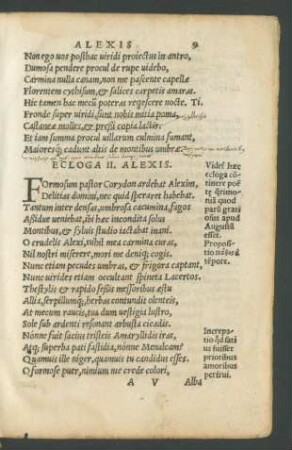 ALEXIS 9
Non ego vos posthac viridi proiectus in antro,
Dumosa pendere procul de rupe videbo,
Carmina nulla canam, non me pascente capellæ
Florentem cythisum, & salices carpetis amaras.
Hic tamen hac mecū poteras reqescere nocte. Ti.
Fronde super viridi, sunt nobis mitia poma,
Castaneæ molles, & pressi copia lactis:
Et iam summa procul villarum culmina fumant,
Maioresq́; cadunt altis de montibus umbræ.
ECLOGA II. ALEXIS.
FOrmosum pastor Corydon ardebat Alexim,
Delitias domini, nec quid speraret habebat.
Tantum inter densas, umbrosa cacumina, fagos
Assidue veniebat, ibi hæc incondita solus
Montibus, & sylvis studio iactabat inani.
O crudelis Alexi, nihil mea carmina curas,
Nil nostri miserere, mori me deniq; cogis.
Nunc etiam pecudes umbras, & frigora captant,
Nunc virides etiam occultant spineta Lacertos.
Thestylis & rapido fessis messoribus æstu
Allia, serpillumq; herbas contundit olenteis,
At mecum raucis, tua dum vestigia lustro,
Sole sub ardenti resonant arbusta cicadis.
Nónne fuit satius tristeis Amaryllidis iras,
Atq; superba pati fastidia, nónne Menalcam?
Quamvis ille niger, quamvis tu candidus esses.
O formose puer, nimium ne crede colori,
A V Alba
Videt̃ hæc
ecloga cō
tinere poē
quod
parū grati
osus apud
Augustū
esset.
Propositi
o
tēpore.
Increpa-
tio
tius fuisset
prioribus
amoribus